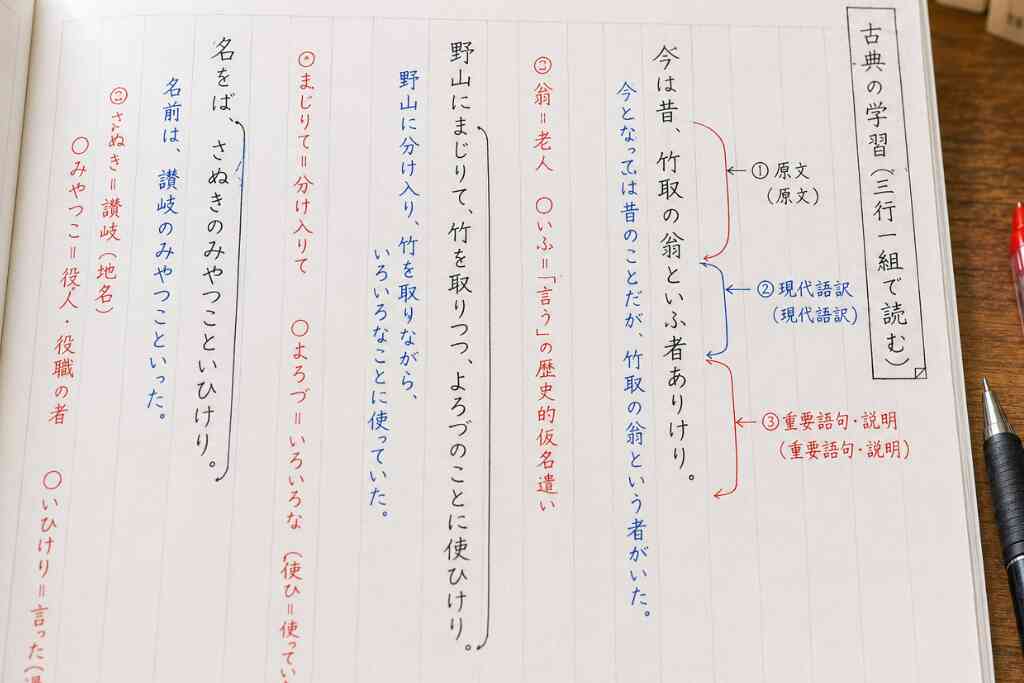 古典の学習（三行一組で読む）
①原文
（原文）
②現代語訳
（現代語訳）
③重要語句・説明
（重要語句・説明）
今は昔、竹取の翁といふ者ありけり。
今となっては昔のことだが、竹取の翁という者がいた。
翁＝老人　〇いふ＝「言う」の歴史的仮名遣い
野山にまじりて、竹を取りつつ、よろづのことに使ひけり。
野山に分け入り、竹を取りながら、
いろいろなことに使っていた。
まじりて＝分け入りて　〇よろづ＝いろいろな　（使ひ＝使ってい
名をば、さぬきのみやつこといひけり。
名前は、讃岐のみやつこといった。
さぬき＝讃岐（地名）
〇みやつこ＝役人・役職の者
〇いひけり＝言った（